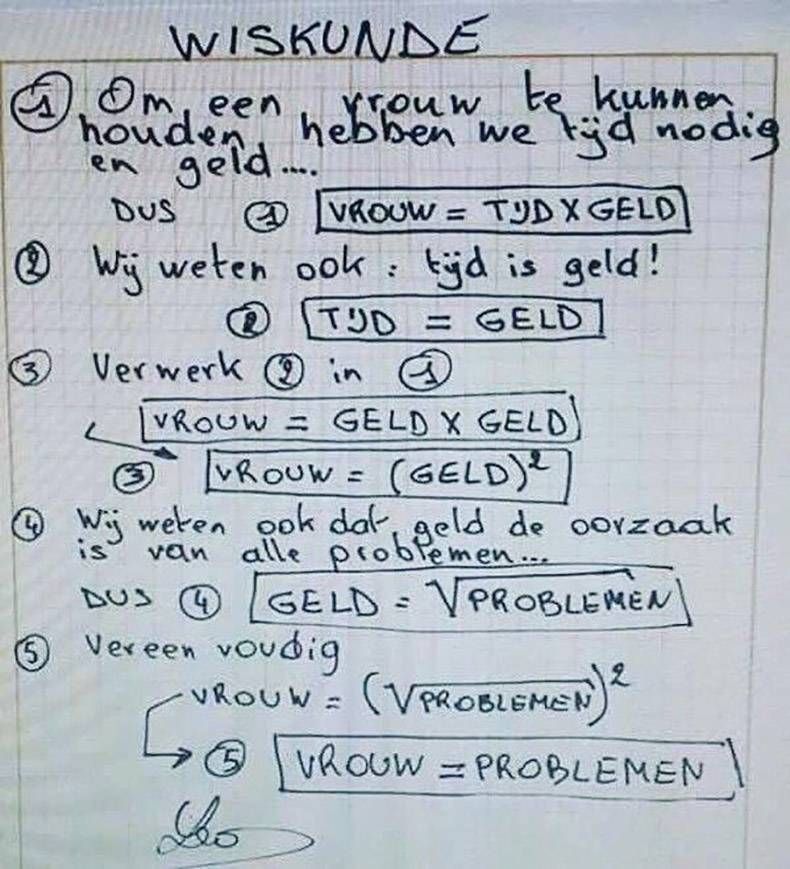 WISKUNDE
① Om een vrouw te kunnen
houden hebben we tijd nodig
en geld....
DUS ① VROUW = TIJD X GELD
② Wij weten ook : tijd is geld!
② TIJD = GELD
③ Verwerk ② in ①
VROUW = GELD X GELD
③ VROUW = (GELD)²
④ Wij weten ook dat geld de oorzaak
is van alle problemen...
DUS ④ GELD = √PROBLEMEN
⑤ Vereen voudig
VROUW = (√PROBLEMEN)²
⑤ VROUW = PROBLEMEN
Leo